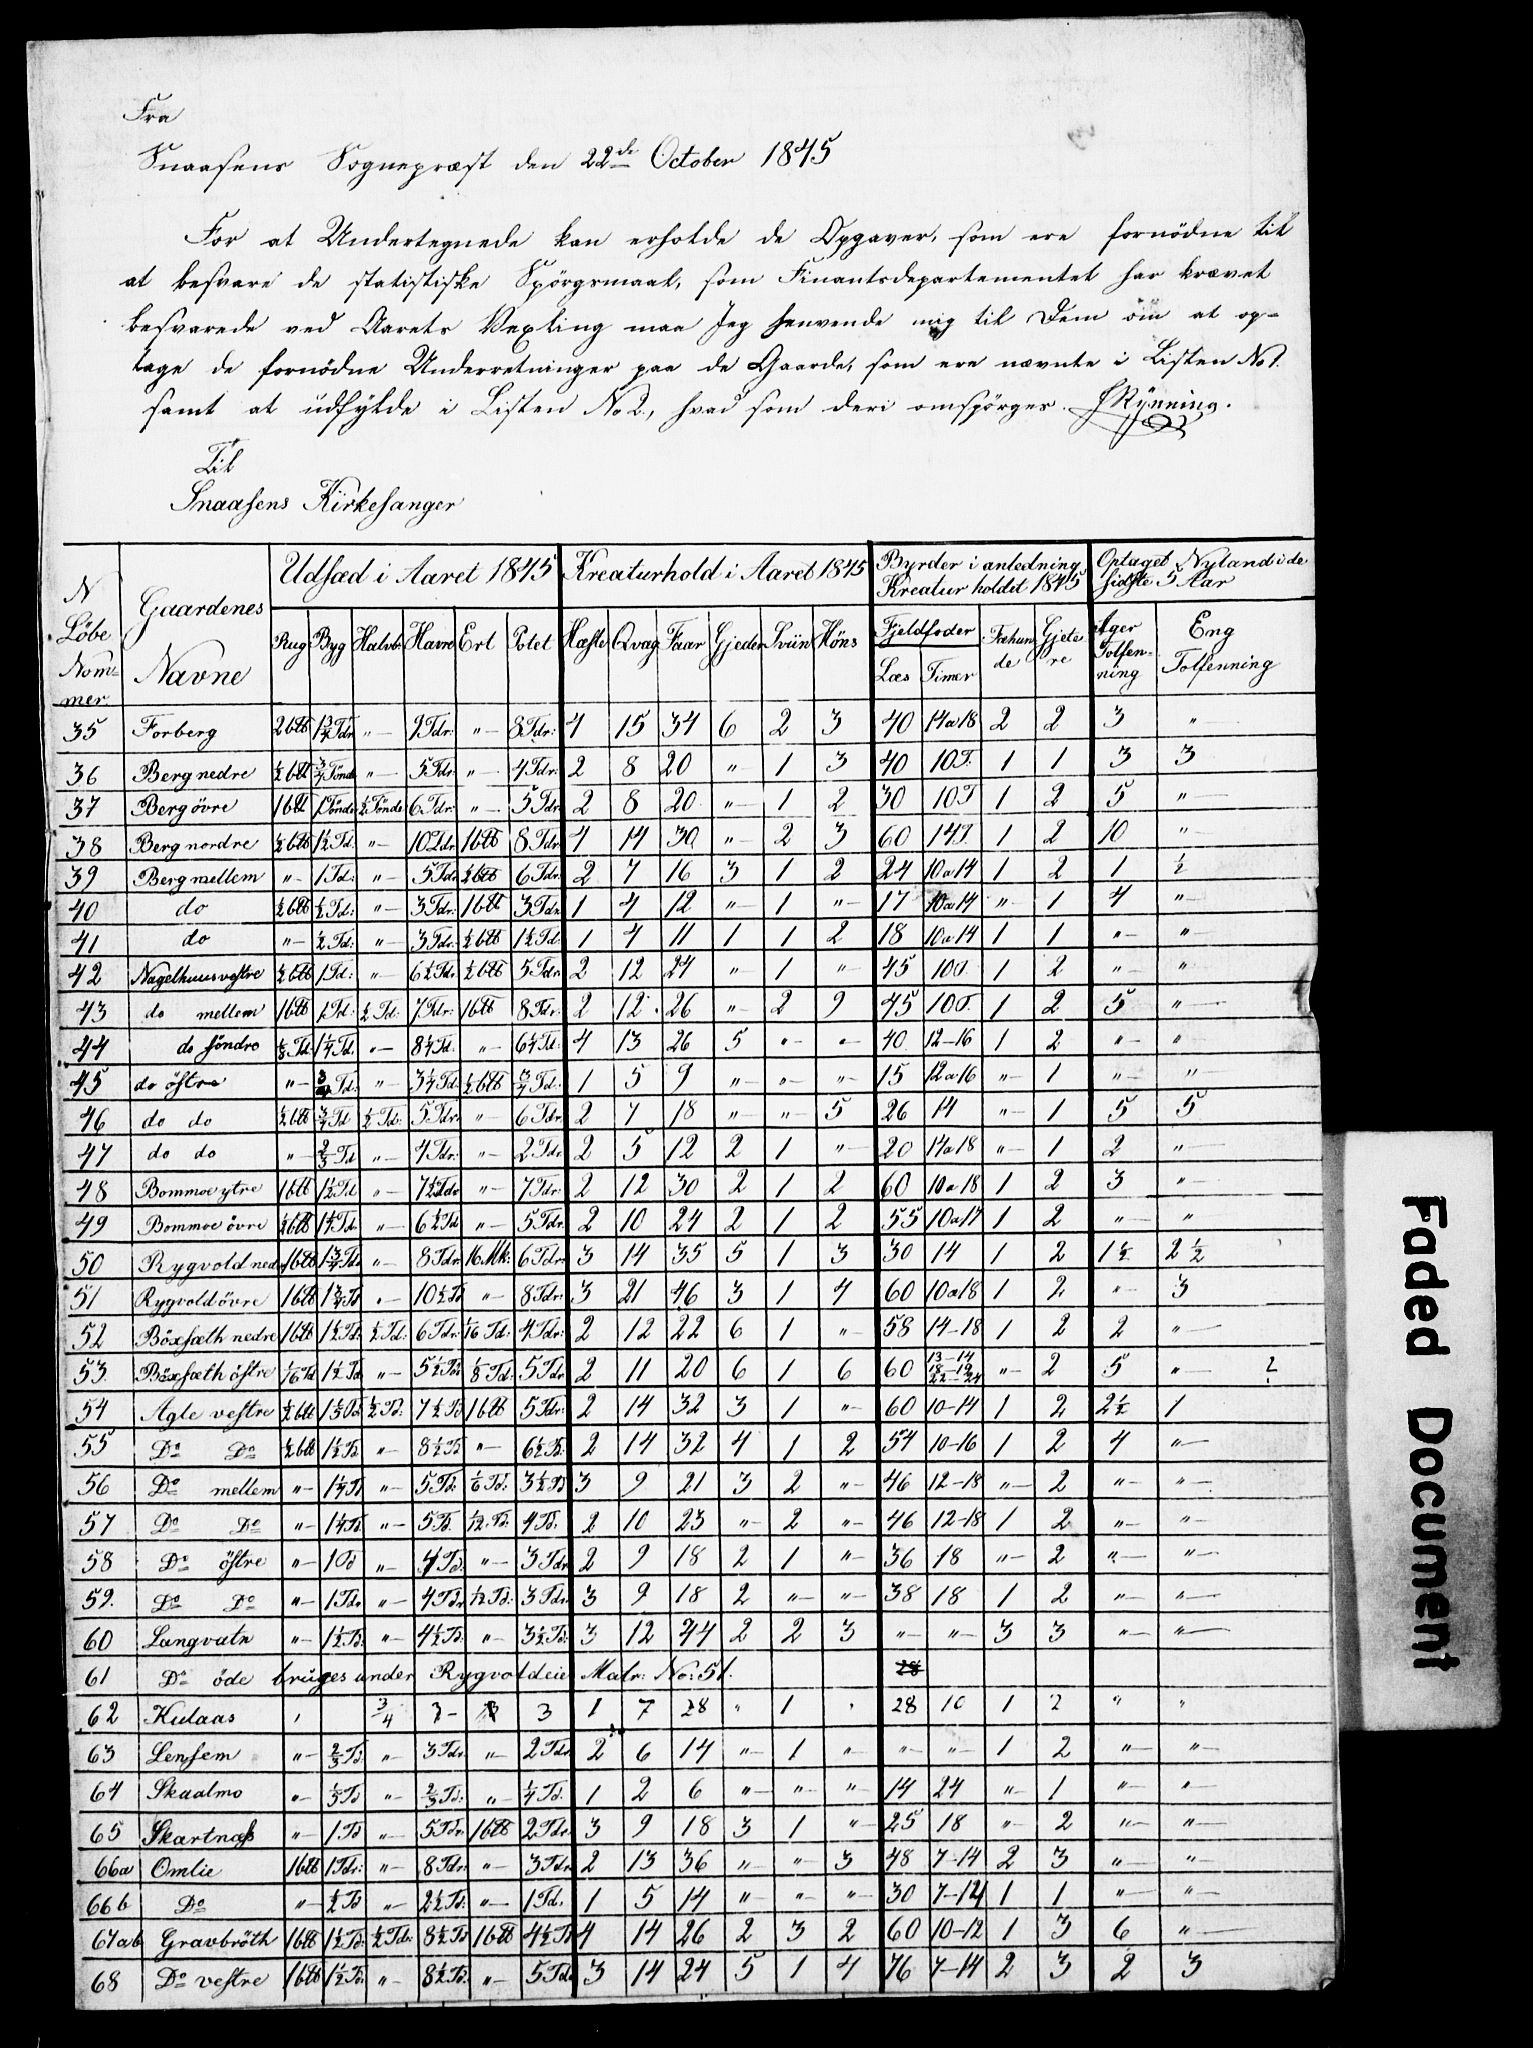 Fra
Snaasens Sognepræst den 22de October 1845
For at Undertegnede kan erholde de Opgaver, som ere fornödne til
at besvare de statistiske Spörgsmaal, som Finantsdepartementet har krævet
besvarede ved Aarets maa Jeg henvende mig til Dem om at op-
tage de fornödne Underretninger paa de Gaarde, som ere nævnte i Listen No 1.
samt at udfylde i Listen No 2, hvad som deri omspörges. Rynning.
Til
Snaasens Kirkesanger
N Löbe Nom-mer | Gaardenes Navne | Udsæd i Aaret 1845 | Kreaturhold i Aaret 1845 | Byrder i anledning Kreatur holdet 1845 | Optaget Nyland i de sidste 5 Aar
Rug | Byg | Halvb: | Havre | Ert | Potet | Hæste | Qvæg | Faar | Gjeder | Sviin | Höns | Fjeldfoder Læs | Timer | Fæhunde | Gjetere | Ager Tolfenning | Eng Tolfenning
35 Forberg 2 btt 1 3/4 Tdr "– 9 Tdr: "– 8 Tdr: 4 15 34 6 2 3 40 14 a 18 2 2 3 "–
36 Berg nedre 1/2 btt 3/4 Tönde "– 5 Tdr: "– 4 Tdr: 2 8 20 "– 1 3 40 10 T. 1 1 3 3
37 Berg övre 1 btt 1 Tönde 1/2 Tönde 6 Tdr: "– 5 Tdr 2 8 20 "– 1 2 30 10 T 1 2 5 "–
38 Berg nordre 1/2 btt 1 1/2 Td. "– 10 Tdr 1 btt 8 Tdr. 4 14 30 "– 2 3 60 14 T. 1 2 10 "–
39 Berg mellem "– 1 Td: "– 5 Tdr 1/2 btt 6 Tdr: 2 7 16 3 1 2 24 10 a 14 1 2 1 1/2
40 do 1/2 btt 1/2 Td: "– 3 Tdr: 1 btt 3 Tdr 1 4 12 "– 1 "– 17 10 a 14 "– 1 4 "–
41 do "– 1/2 Td: "– 3 Tdr: 1/2 btt 1 1/2 Td: 1 4 11 1 1 2 18 10 a 14 1 1 "– "–
42 Nagelhuus vestre 1/2 btt 1 Td: "– 6 1/2 Tdr 1/2 btt 5 Tdr: 2 12 24 "– 1 "– 45 10 T. 1 2 "– "–
43 do mellem 1 btt 1 Td: 1/2 Td: 7 Tdr: 1 btt 8 Tdr: 2 12 26 "– 2 9 45 10 T. 1 2 5 "–
44 do söndre 1/8 Td: 1 1/4 Td. "– 8 1/4 Td. "– 6 1/4 Td: 4 13 26 5 "– "– 40 12–16 1 2 "– "–
45 do östre "– 3/4 Td: "– 3 1/4 Td. 1/2 btt Td. 1 5 9 "– "– "– 15 12 a 16 "– 1 "– "–
46 do do 1/2 btt 3/4 Td 1/2 Td: 5 Tdr: "– 6 Tdr 2 7 18 "– "– 5 26 14 "– 1 5 5
47 do do "– 2/3 Td "– 4 Tdr: "– 2 Tdr 2 5 12 2 1 "– 20 14 a 18 "– 1 2 "–
48 Bommoe ytre 1 btt 1 1/2 Td "– 7 1/2 Tdr "– 7 Tdr: 2 12 30 2 1 2 60 10 a 18 1 2 3 "–
49 Bommoe övre 1/2 btt 1 1/4 Td. "– 6 1/2 Td "– 5 Tdr. 2 10 24 2 1 2 55 10 a 17 1 2 "– "–
50 Rygvold nedre 1 btt 1 3/4 Td "– 8 Tdr: 16 Mk: 6 Tdr: 3 14 35 5 1 3 30 14 1 2 1 1/2 2 1/2
51 Rygvold övre 1 btt 1 3/4 Td "– 10 1/2 Td "– 8 Tdr: 3 21 46 3 1 4 60 10 a 18 1 2 "– 3
52 Böxsæth nedre 1 btt 1 1/2 Td: 1/2 Td: 6 Tdr: 1/16 Td: 4 Tdr: 2 12 22 6 1 "– 58 14–18 1 2 2 "–
53. Böxsæth östre 1/16 Td 1 1/2 Td "– 5 1/2 Tdr 1/8 Td: 5 Tdr 2 11 20 6 1 6 60 13–14 18–19 22–24 "– 2 5 "– ?
54 Agle vestre 1/2 btt 1 1/3 Td 1/2 Td: 7 1/2 Td 1 btt 5 Tdr: 2 14 32 3 1 "– 60 10–14 1 2 2 1/2 1
55 Do Do 1/2 btt 1 1/2 Td "– 8 1/2 Td "– 6 1/2 Td: 2 14 32 4 1 2 54 10–16 1 2 4 "–
56 Do mellem "– 1 1/4 Td "– 5 Td: 1/6 Td: 3 1/2 Td 3 9 21 3 2 "– 46 12–18 "– 2 "– "–
57 Do Do "– 1 1/4 Td. "– 5 Td. 1/12 Td. 4 Td. 2 10 23 "– 2 "– 46 12–18 1 2 "– "–
58 Do östre "– 1 Td "– 4 Td. "– 3 Tdr 2 9 18 2 1 "– 36 18 "– 2 "– "–
59. Do Do "– 1 Tdr "– 4 Tdr 1/12 Td: 3 Tdr 3 9 18 2 "– "– 38 18 1 2 "– "–
60 Langvatn "– 1 1/2 Td. "– 4 1/2 Td. "– 3 1/2 Td: 3 12 44 2 2 3 "– "– 3 3 "– "–
61 Do öde bruges under Rygvold eie Matr: No: 51. 28
62 Kulaas ' 3/4 3– 3 1 7 28 " 1 ' 28 10 1 2 " "
63 Lensem "– 2/3 Td "– 3 Tdr "– 2 Tdr 2 6 14 "– 1 "– "– "– 1 2 "– "–
64 Skaalmo "– 1/3 Td "– 2/3 Td: "– 1/4 Td. 1 2 6 "– "– "– 14 24 "– 1 "– "–
65 Skartnæss "– 1 Td "– 5 Tdr 1 btt 2 Tdr 3 9 18 3 1 "– 25 18 "– 2 "– "–
66a Omlie 1 btt 1 Tdr: "– 8 Tdr: "– 3 Tdr 2 13 36 "– "– 3 48 7–14 2 3 "– "–
66b Do "– 1/2 Td "– 2 1/2 Td: "– 1 Td. 1 5 14 "– "– "– 30 7–14 1 1 "– "–
67ab Gravbröth 1 btt 1 1/2 Td: 1/2 Td: 8 1/2 Td 1 btt 4 1/2 Td 4 14 26 2 3 2 60 10–12 1 3 6 "–
68 Do vestre 1 btt 1 1/2 Td. "– 8 1/2 Td. "– 5 Tdr 3 14 24 5 1 4 76 7–14 2 3 2 3
Faded Document